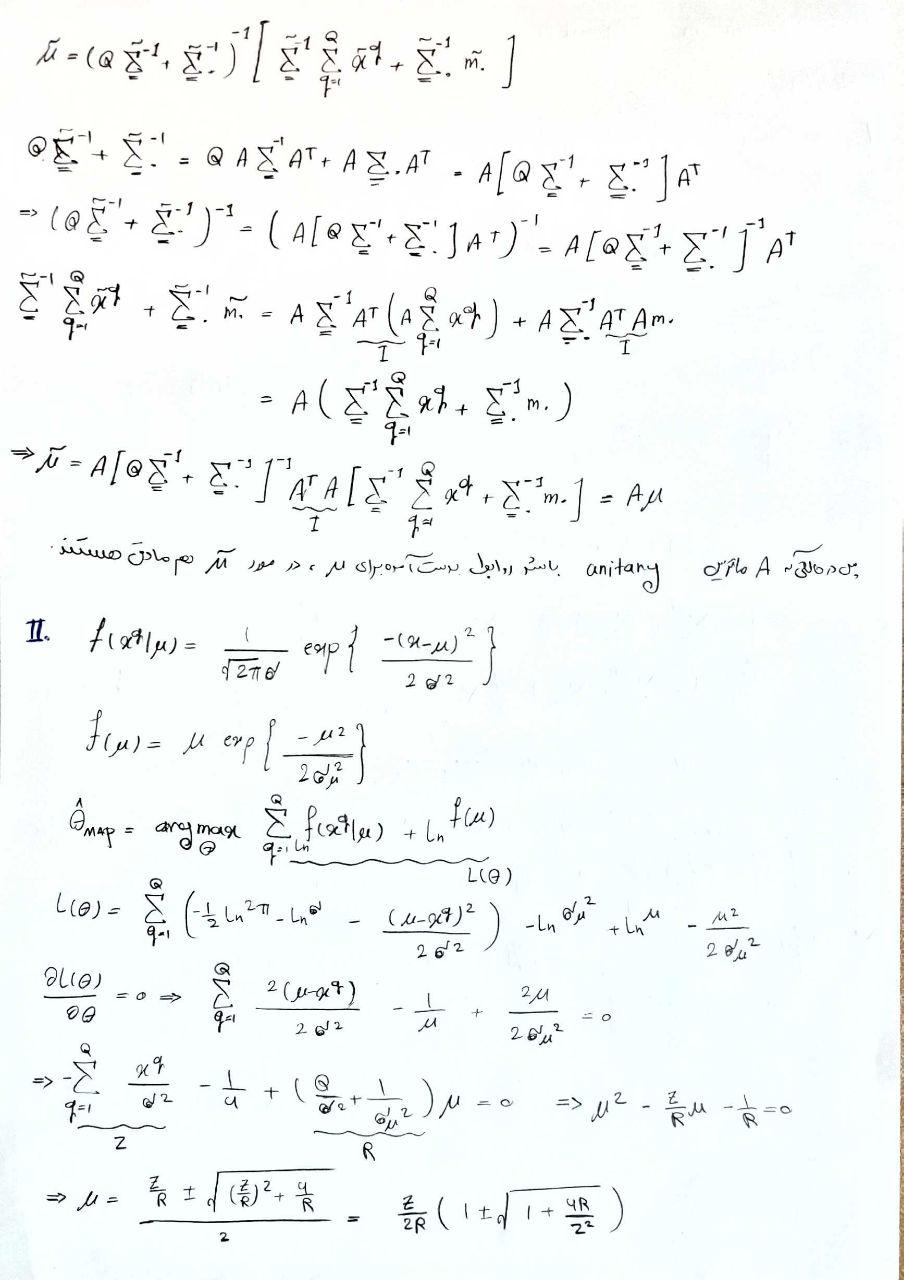 μ̃ = (Q Σ̃⁻¹ + Σ̃.⁻¹)⁻¹ [ Σ̃⁻¹ Σ_{q=1}^{Q} x̃^q + Σ̃.⁻¹ m̃. ]
Q Σ̃⁻¹ + Σ̃.⁻¹ = Q A Σ⁻¹ A^T + A Σ. A^T = A [ Q Σ⁻¹ + Σ.⁻¹ ] A^T
⇒ (Q Σ̃⁻¹ + Σ̃.⁻¹)⁻¹ = ( A [ Q Σ⁻¹ + Σ.⁻¹ ] A^T )⁻¹ = A [ Q Σ⁻¹ + Σ.⁻¹ ]⁻¹ A^T
Σ̃⁻¹ Σ_{q=1}^{Q} x̃^q + Σ̃.⁻¹ m̃. = A Σ⁻¹ A^T ( A Σ_{q=1}^{Q} x^q ) + A Σ.⁻¹ A^T A m.
I I
= A ( Σ⁻¹ Σ_{q=1}^{Q} x^q + Σ.⁻¹ m. )
⇒ μ̃ = A [ Q Σ⁻¹ + Σ.⁻¹ ]⁻¹ A^T A [ Σ⁻¹ Σ_{q=1}^{Q} x^q + Σ.⁻¹ m. ] = A μ
I
پس در حالتی که A ماتریس unitary باشد روابط بدست آمده برای μ ، در مورد μ̃ هم صادق هستند.
II. f(x^q|μ) = 1/(√2π σ) exp{ -(x-μ)² / 2σ² }
f(μ) = μ exp{ -μ² / 2σ_μ² }
θ̂_MAP = argmax_θ Σ_{q=1}^{Q} ln f(x^q|μ) + Ln f(μ)
L(θ)
L(θ) = Σ_{q=1}^{Q} ( -1/2 Ln 2π - Ln σ - (μ-x^q)² / 2σ² ) - Ln σ_μ² + Ln μ - μ² / 2σ_μ²
∂L(θ)/∂θ = 0 ⇒ Σ_{q=1}^{Q} 2(μ-x^q) / 2σ² - 1/μ + 2μ / 2σ_μ² = 0
⇒ - Σ_{q=1}^{Q} x^q/σ² - 1/μ + ( Q/σ² + 1/σ_μ² ) μ = 0 ⇒ μ² - Z/R μ - 1/R = 0
Z R
⇒ μ = ( Z/R ± √( (Z/R)² + 4/R ) ) / 2 = Z/2R ( 1 ± √( 1 + 4R/Z² ) )